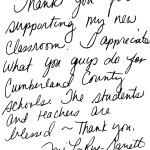 Thank you for
supporting my new
classroom. I appreciate
what you guys do for
Cumberland County
schools. The students
and teachers are
blessed ~ Thank you.